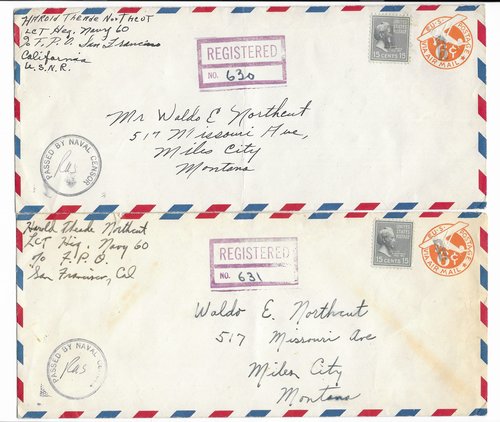 HAROLD Theade NORTHCUT
LCT Hq. Navy 60
% F.P.O. San Francisco
California
U.S.N.R.
REGISTERED
NO. 630
UNITED STATES POSTAGE
15 CENTS 15
U.S. POSTAGE
6¢
VIA AIR MAIL
Mr Waldo E Northcut
517 Missouri Ave,
Miles City
Montana
PASSED BY NAVAL CENSOR
Ras
Harold Theade Northcut
LCT Hq. Navy 60
% F.P.O.
San Francisco, Cal
REGISTERED
NO. 631
UNITED STATES POSTAGE
15 CENTS 15
U.S. POSTAGE
6¢
VIA AIR MAIL
Waldo E. Northcut
517 Missouri Ave
Miles City
Montana
PASSED BY NAVAL CE
Ras